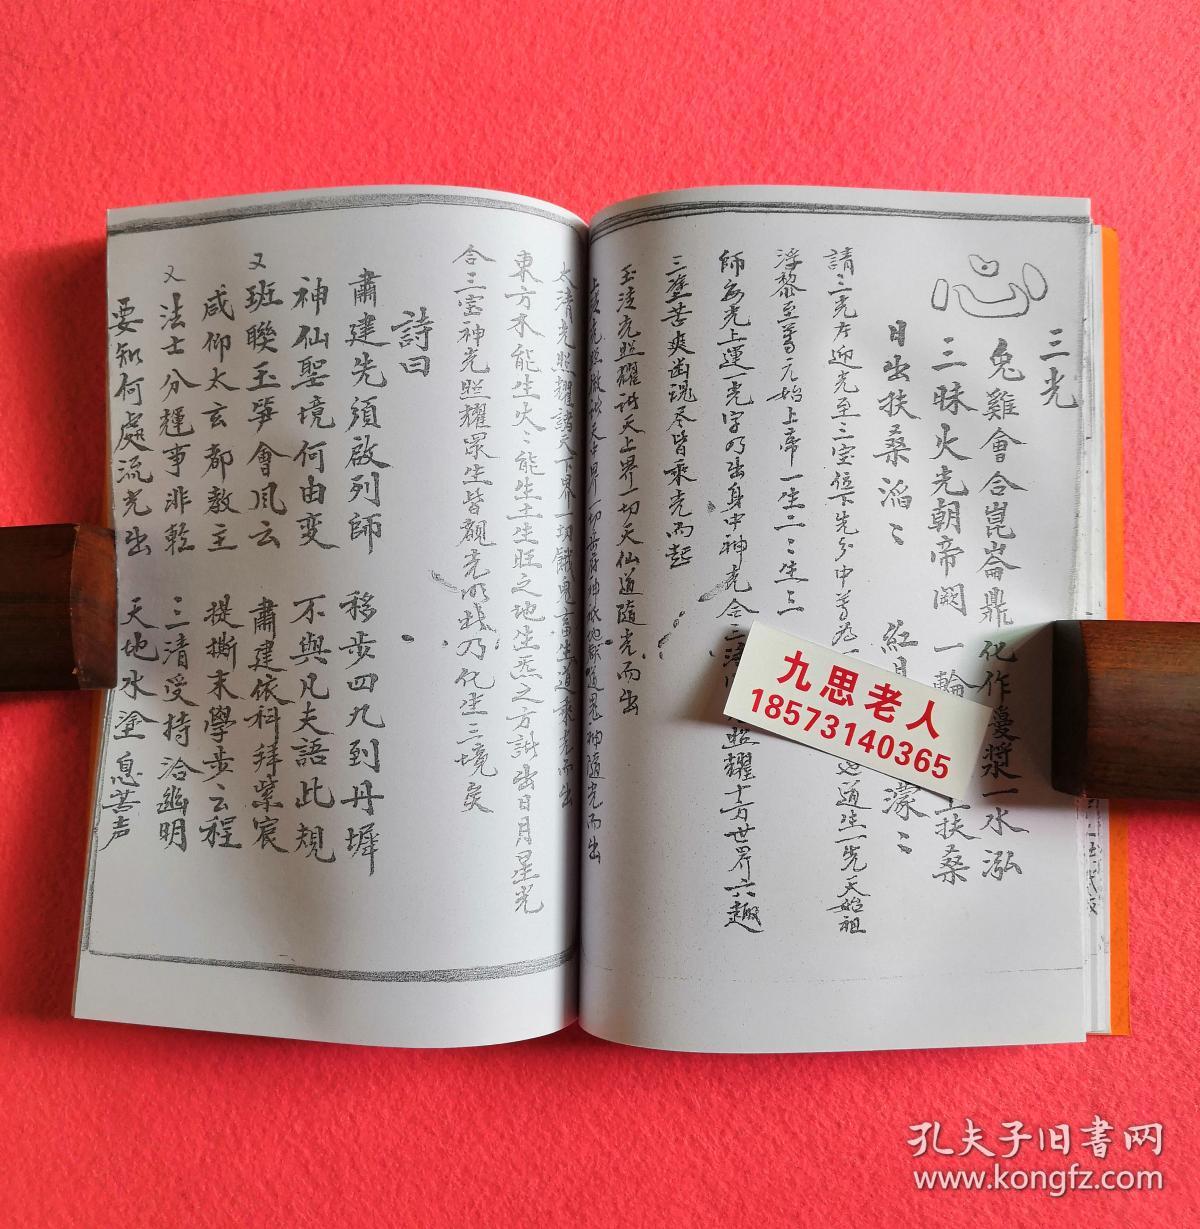 三光
兔雞會合崑崙鼎 化作 漿一水泓
三昧火光朝帝闕 一輪 上扶桑
日出扶桑滔〻 紅 濛〻
請三光 左迎光至三宝位下先 中尊 道生一先天始祖
浮黎至尊元始上帝一生二〻生三
師 光上運一光字乃出身中神光合三清 照耀十方世界六趣
三塗苦爽幽魂尽皆乘光而起
玉清光照耀諸天上界一切天仙道隨光而出
中界一切 道鬼神隨光而出
太清光照耀諸天下界一切餓鬼畜生道乘光而出
東方木能生火〻能生土生旺之地生炁之方 出日月星光
合三宝神光照耀眾生皆覩光明 乃化生三境矣
詩曰
肅建先須啟列師 移步四九到丹墀
神仙聖境何由変 不與凡夫語此規
又班聯玉笋會風云 肅建依科拜紫宸
咸仰太玄都教主 提撕末學步云程
又法士分輝事非輕 三清受持洽幽明
要知何處流光出 天地水塗息苦声
九思老人
18573140365
孔夫子旧书网
www.kongfz.com